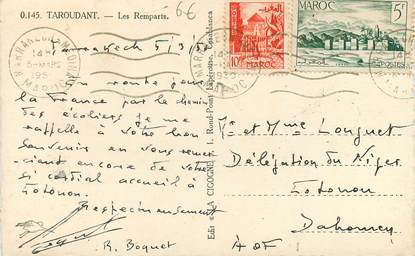 0.145. TAROUDANT. — Les Remparts.
6€
MAROC
10F
MAROC
5F
Marrakech 5/3/50
En route pour
la France par le chemin
des écoliers je me
rappelle à votre bon
souvenir en vous remer-
ciant encore de votre
si cordial accueil à
Cotonou.
Respectueusement
R. Boquet
Edit. LA CIGOGNE
1, Rond-Point
Mr et Mme Longuet
Délégation du Niger
Cotonou
Dahomey
AOF